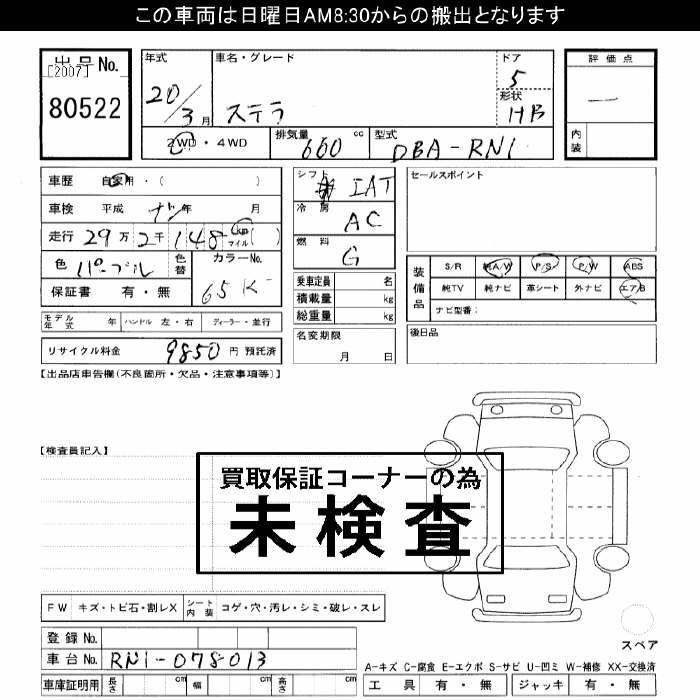 この車両は日曜日AM8:30からの搬出となります
出品No.
[2007]
80522
年式
20/3月
車名・グレード
ステラ
ドア
5
形状
HB
評価点
一
内装
2WD・4WD
排気量 660 cc
型式 DBA-RN1
車歴 自家用・( )
車検 平成 ナシ 年 月
走行 29万2千148 km マイル ( )
色 パープル
色替
カラーNo.
65K
保証書 有・無
シフト IAT
冷房 AC
燃料 G
乗車定員 名
積載量 kg
総重量 kg
セールスポイント
装備品
S/R 純A/W P/S P/W ABS
純TV 純ナビ 革シート 外ナビ エアB
ナビ型番:
モデル年式 年 ハンドル 左・右 ディーラー・並行
名変期限
月 日
後日品
リサイクル料金 9850 円 預託済
【出品店車告欄(不良箇所・欠品・注意事項等)】
【検査員記入】
買取保証コーナーの為
未検査
FW キズ・トビ石・割レX シート内装 コゲ・穴・汚レ・シミ・破レ・スレ
登録No.
車台No. RN1-078013
車庫証明用 長さ cm 幅 cm 高さ cm
スペア
A-キズ C-腐食 E-エクボ S-サビ U-凹ミ W-補修 XX-交換済
工具 有・無 ジャッキ 有・無